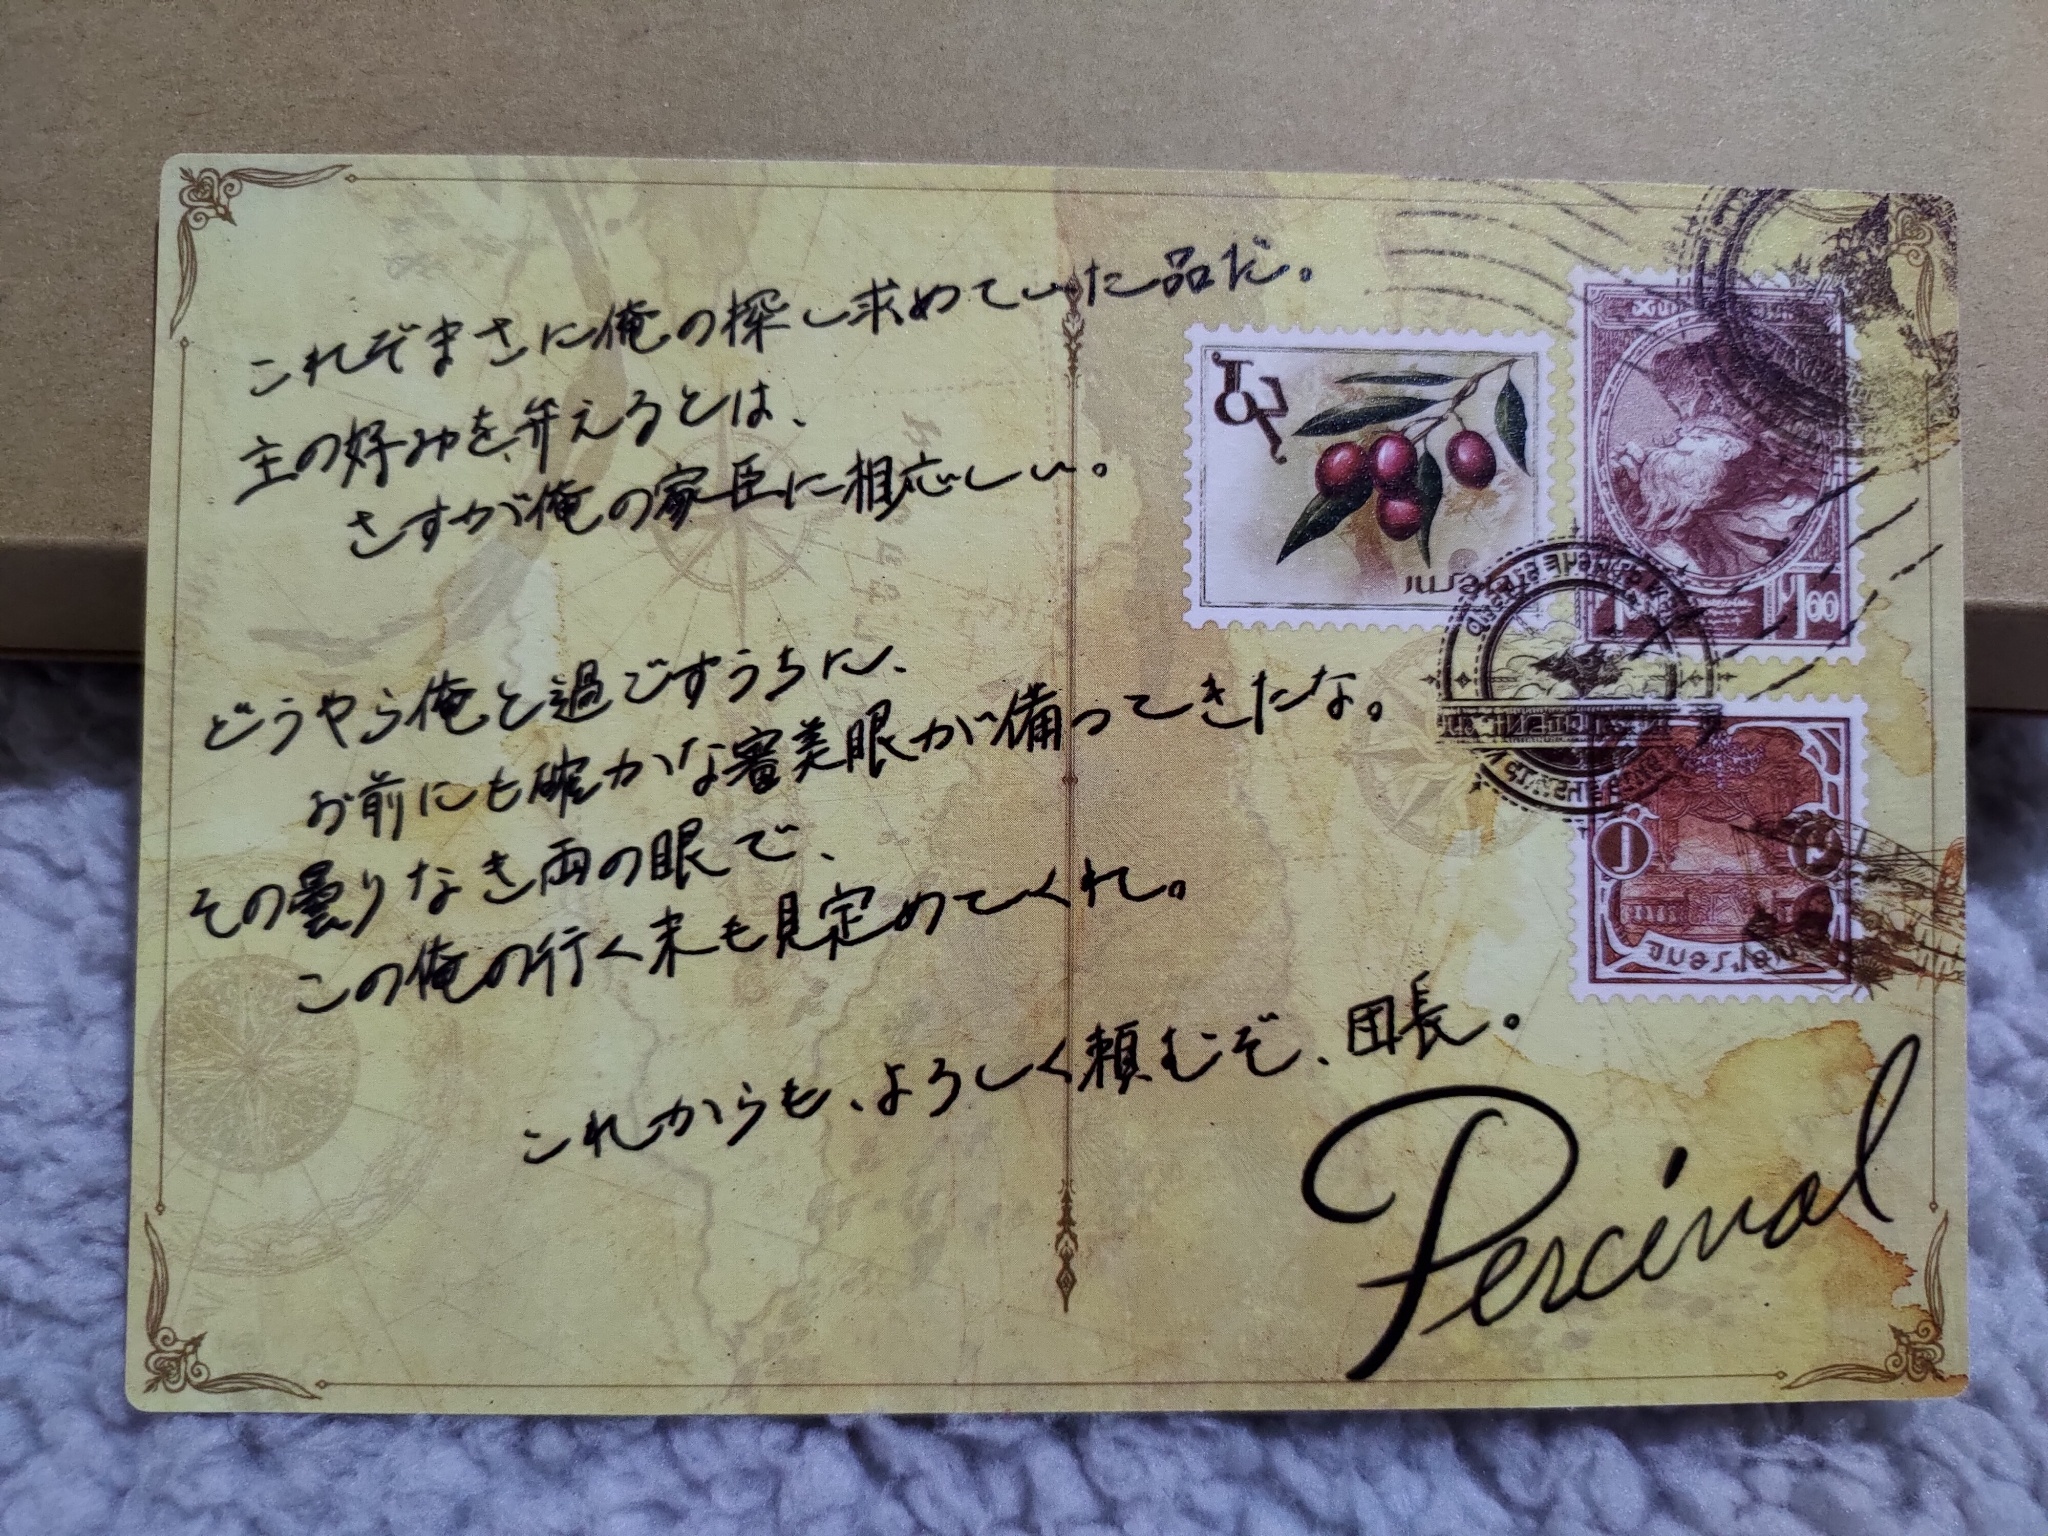 これぞまさに俺の探し求めていた品だ。
主の好みを弁えるとは、
さすが俺の家臣に相応しい。
どうやら俺と過ごすうちに、
お前にも確かな審美眼が備ってきたな。
その曇りなき両の眼で、
この俺の行く末も見定めてくれ。
これからも、よろしく頼むぞ、団長。
Percival